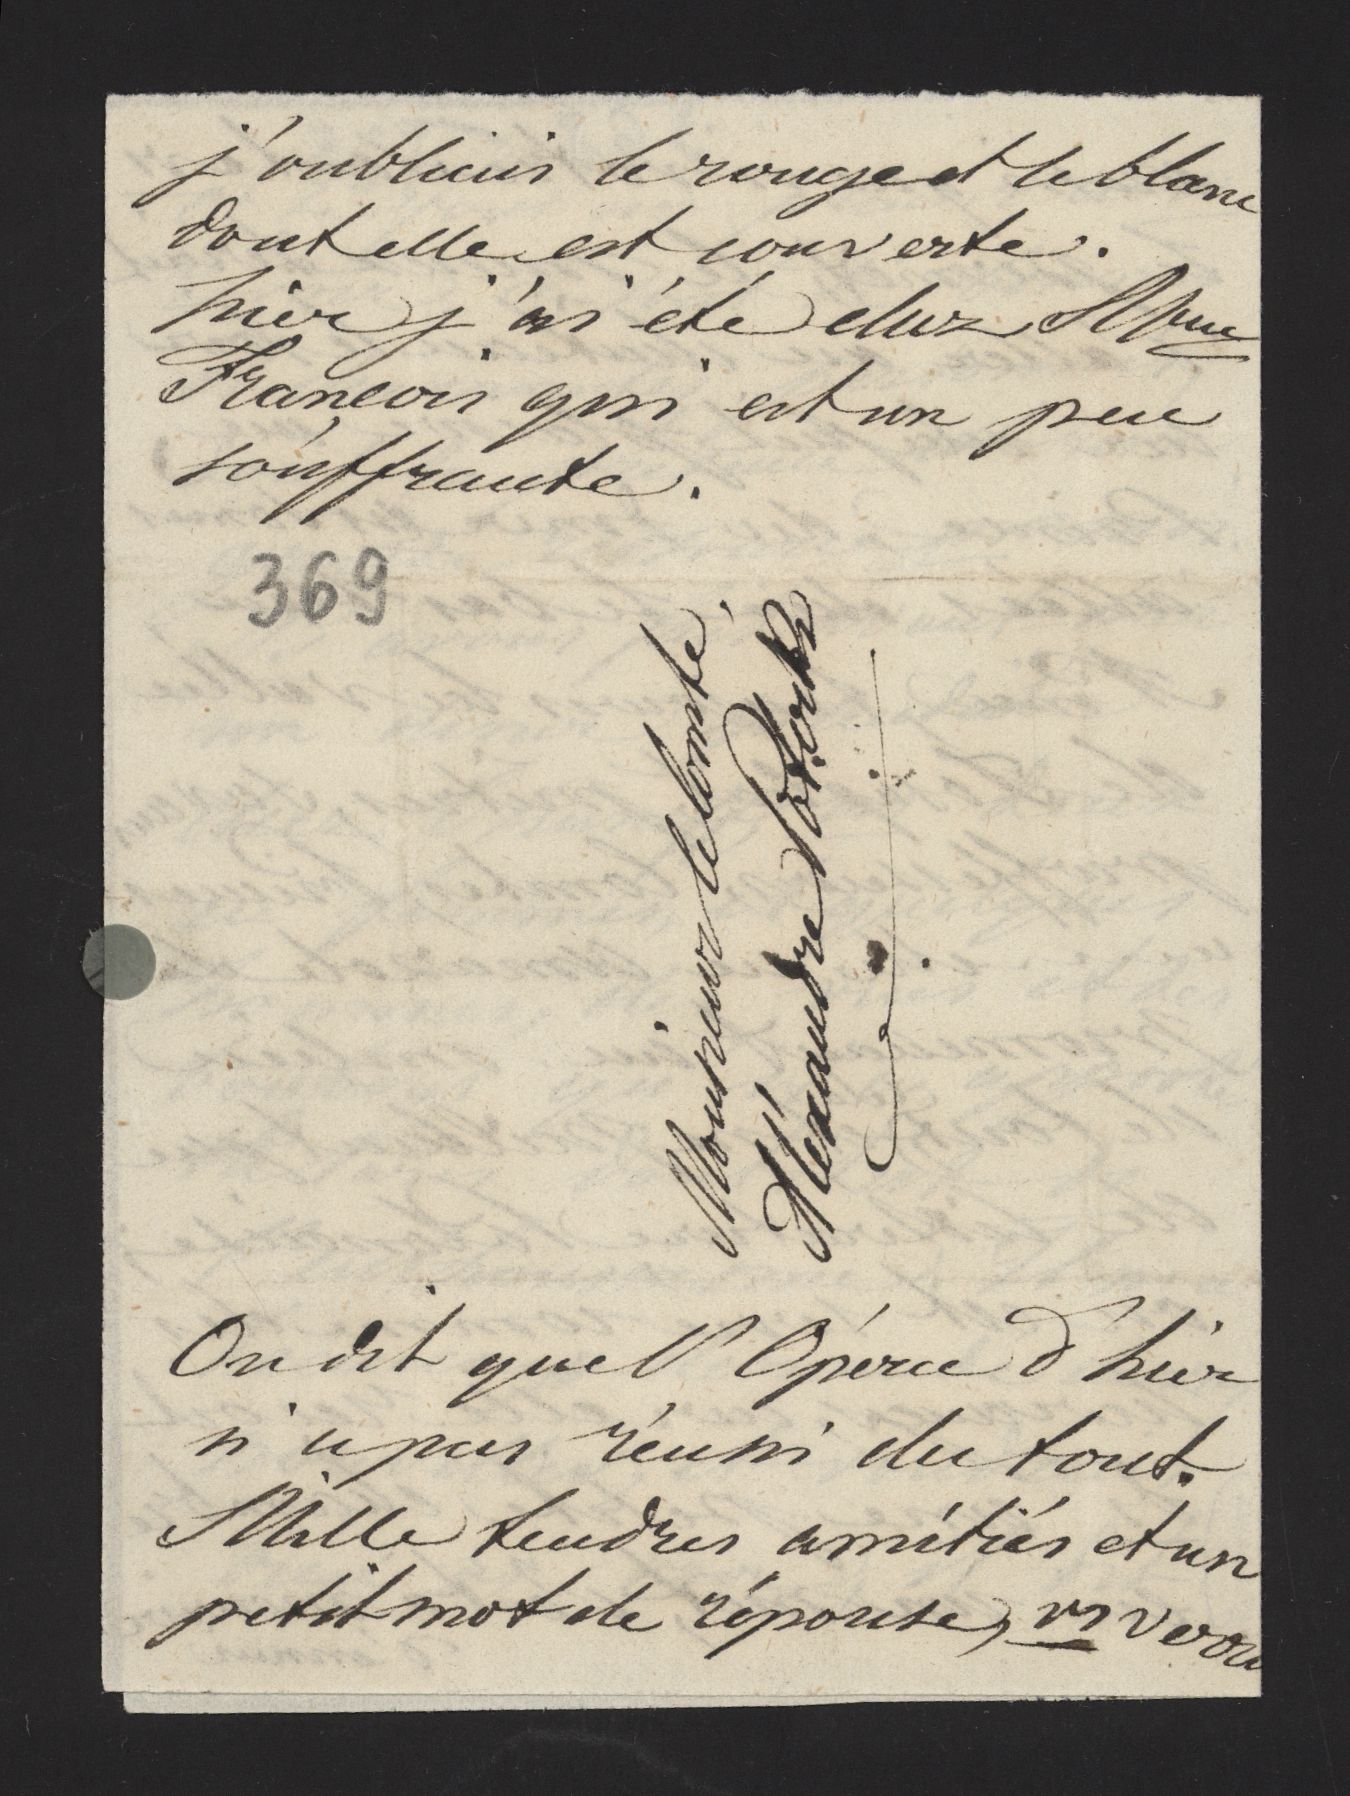 j'oubliais le rouge et le blanc
dont elle est couverte.
hier j'ai été chez Mme
François qui est un peu
souffrante.
369
Monsieur le Comte
Alexandre Potocki
On dit que l'Opéra d'hier
n'a pas réussi du tout.
Mille tendres amitiés et un
petit mot de réponse,